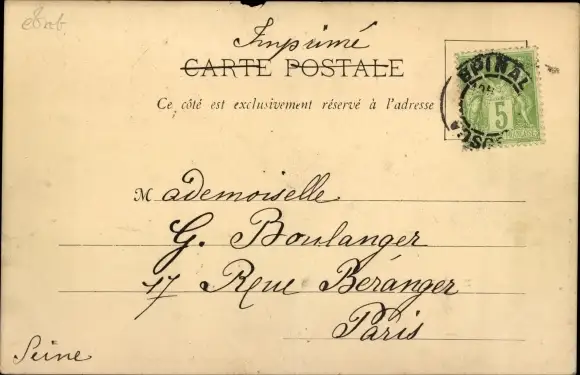 Imprimé
CARTE POSTALE
Ce côté est exclusivement réservé à l'adresse
EPINAL
5
Mademoiselle
G. Boulanger
17 Rue Béranger
Paris
Seine